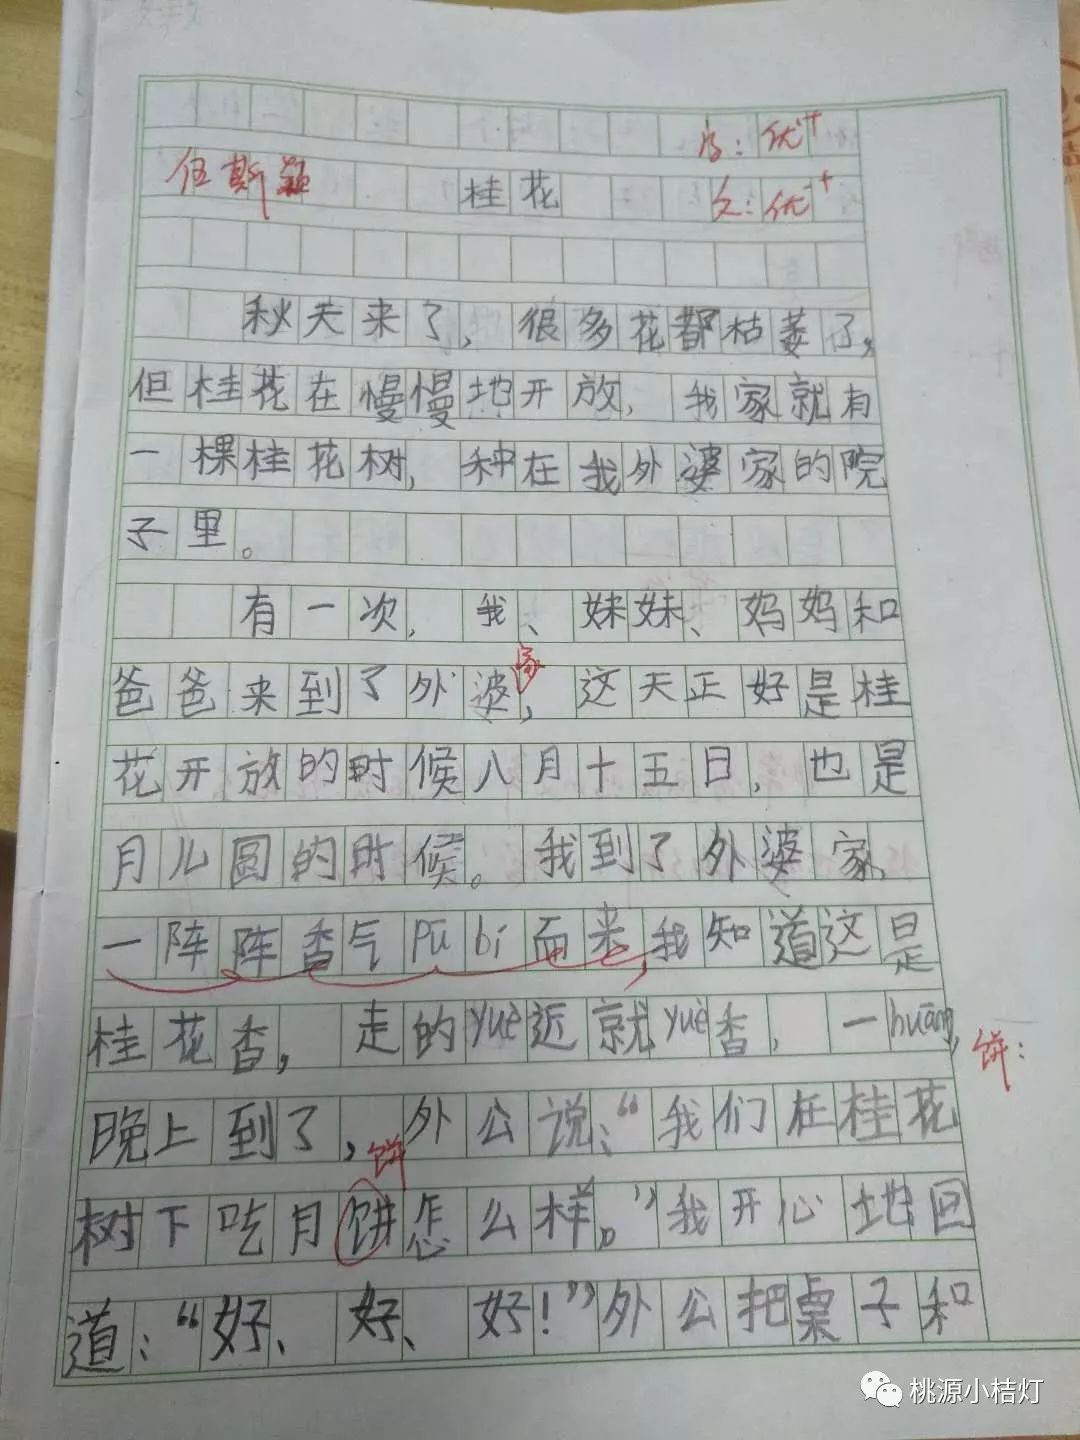 字：优++
伍斯颖 桂花 文：优++
秋天来了，很多花都枯萎了，
但桂花在慢慢地开放，我家就有
一棵桂花树，种在我外婆家的院
子里。
有一次，我、妹妹、妈妈和
爸爸来到了外婆家，这天正好是桂
花开放的时候八月十五日，也是
月儿圆的时候。我到了外婆家，
一阵阵香气pū bí而来，我知道这是
桂花香，走的yuè近就yuè香，一huǎng，
饼：
晚上到了，外公说：“我们在桂花
饼
树下吃月饼怎么样。”我开心地回
道：“好、好、好！”外公把桌子和
桃源小桔灯